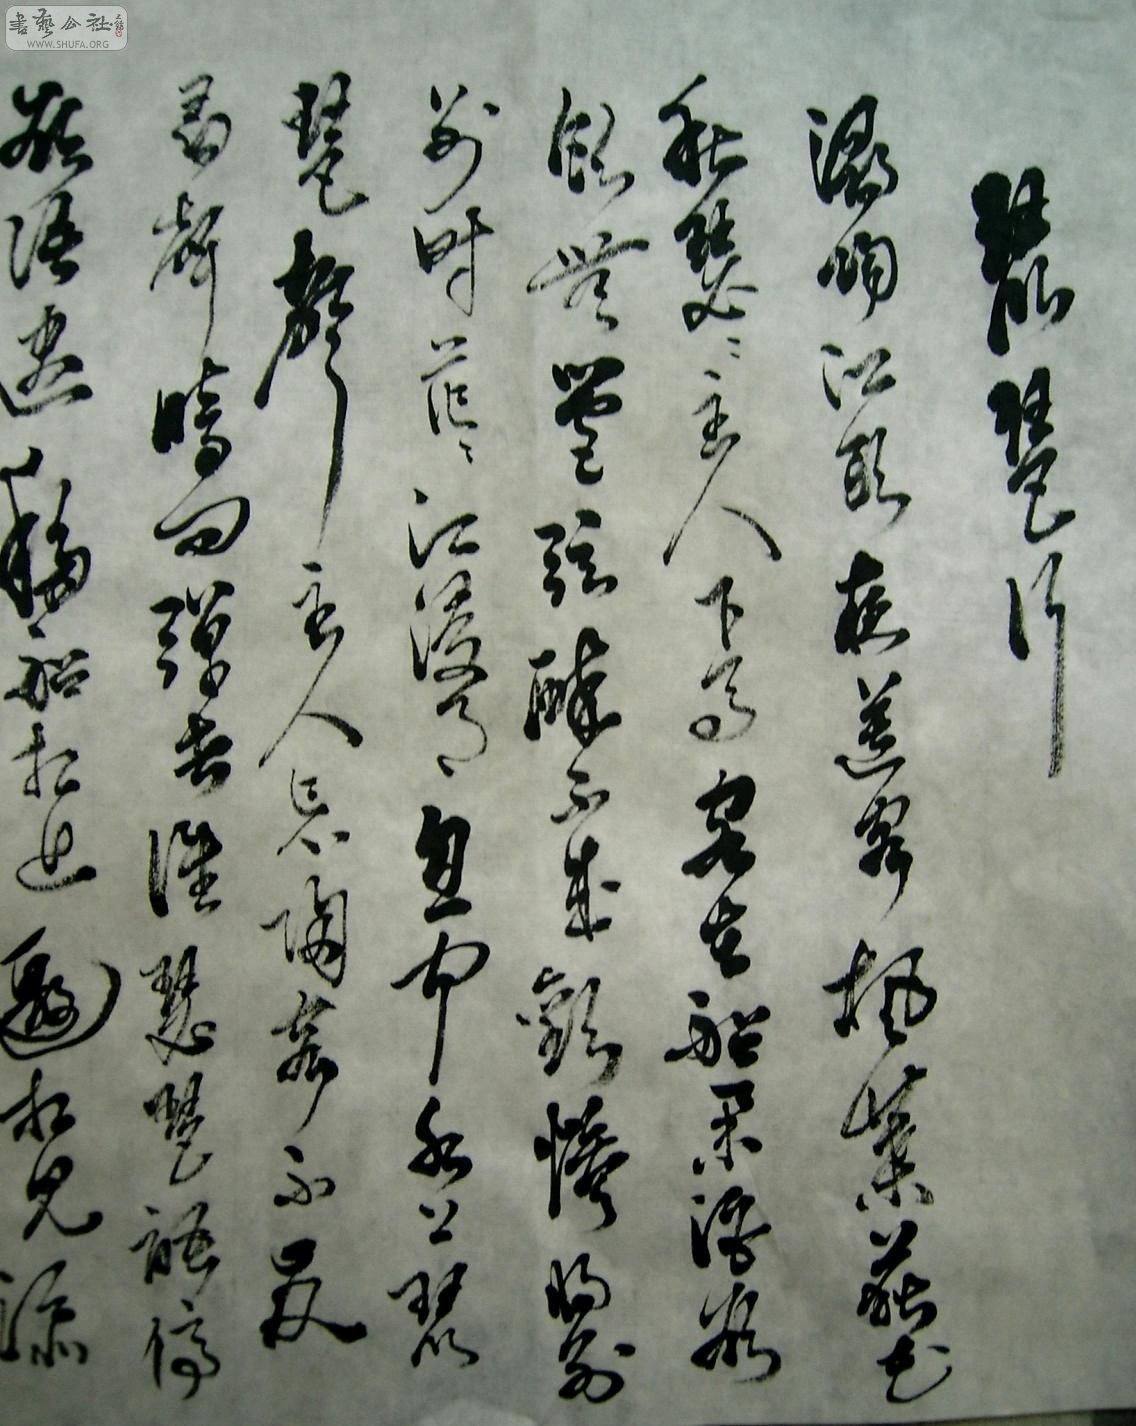 書藝公社
WWW.SHUFA.ORG
琵琶行
潯陽江頭夜送客楓葉荻花
秋瑟〻主人下馬客在船舉酒欲
飲無管弦醉不成歡慘將別
別時茫〻江浸月忽聞水上琵
琶聲主人忘歸客不發
尋聲暗問彈者誰琵琶停
欲語遲移船相近邀相見添